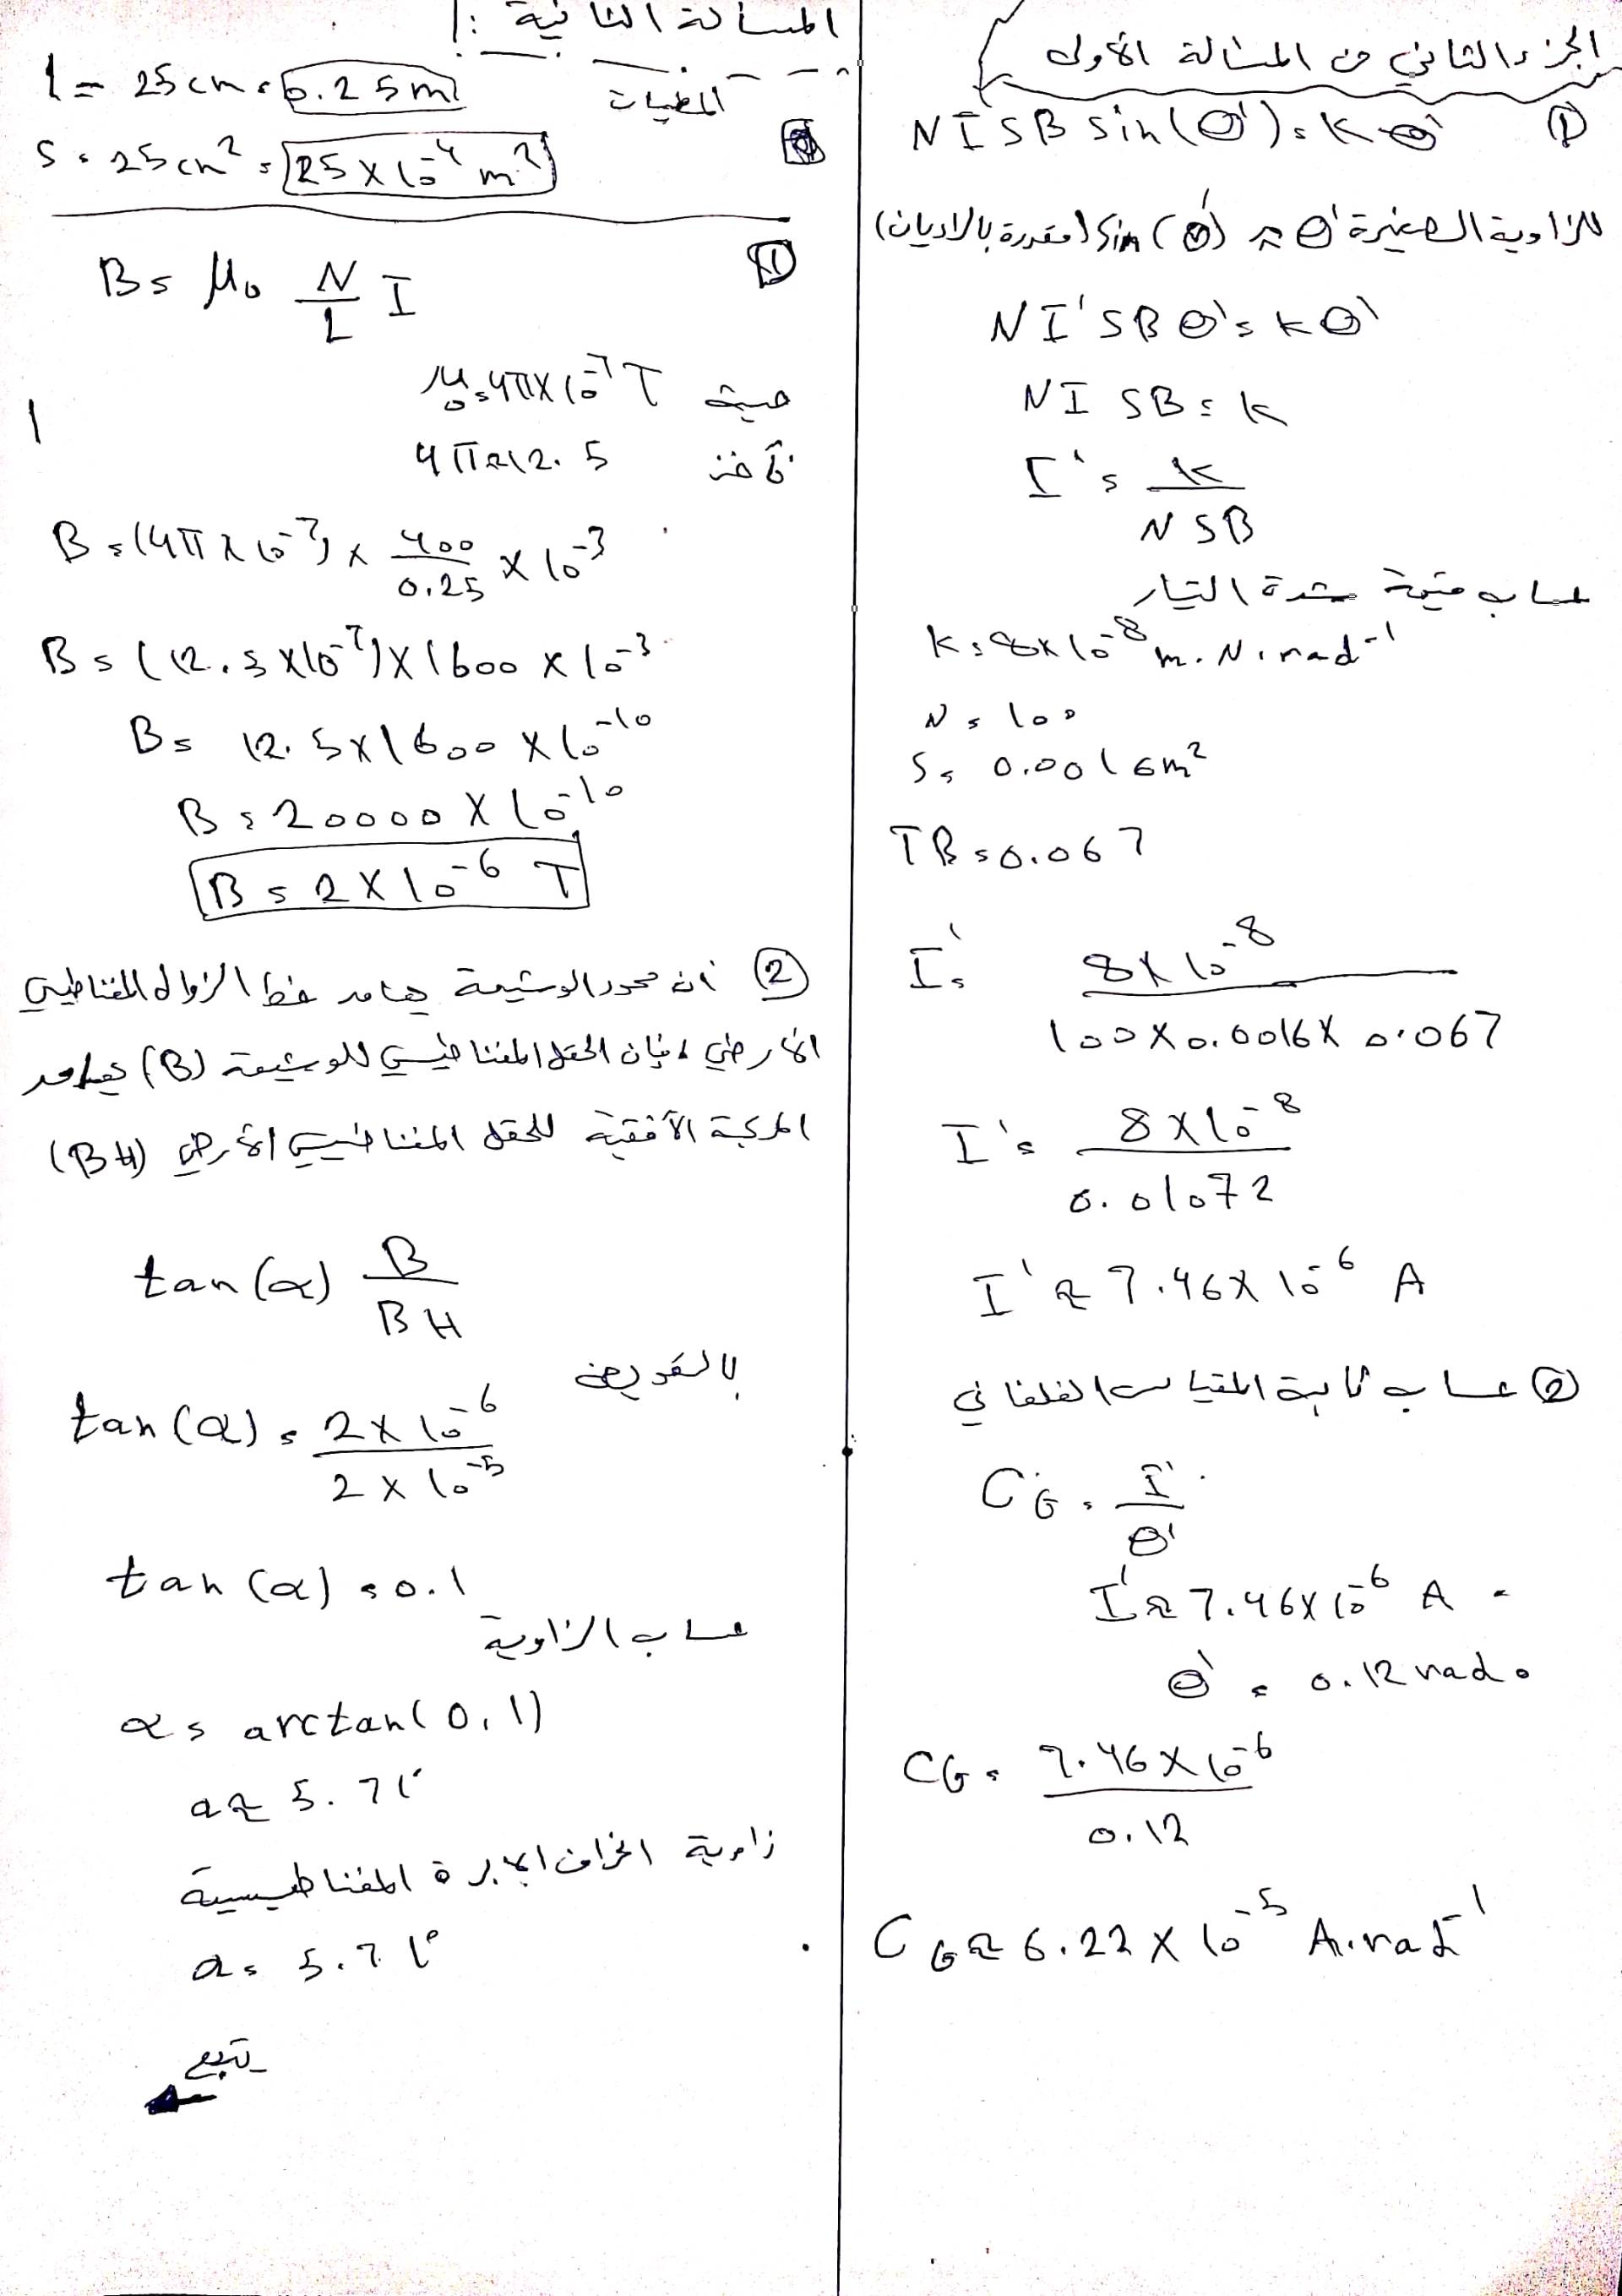 الجزء الثاني من المسألة الأولى
① N I S B sin(θ') = K θ'
للزاوية الصغيرة θ' ≈ sin(θ') (مقدرة بالراديان)
N I' S B θ' = k θ'
N I S B = k
I' = k / NSB
حساب قيمة شدة التيار
K = 8×10^-8 m.N.rad^-1
N = 100
S = 0.0016 m²
TB = 0.067
I' = 8×10^-8 / 100×0.0016×0.067
I' = 8×10^-8 / 0.01072
I' ≈ 7.46×10^-6 A
② حساب ثابتة المقياس الغلفاني
C'G = I' / θ'
I' ≈ 7.46×10^-6 A
θ' = 0.12 rad
CG = 7.46×10^-6 / 0.12
CG ≈ 6.22×10^-5 A.rad^-1
المسألة الثانية:
المعطيات
l = 25 cm = 0.25 m
S = 25 cm² = 25×10^-4 m²
① B = μ₀ N/L I
حيث μ₀ = 4π×10^-7 T
نأخذ 4π ≈ 12.5
B = (4π×10^-7) × 400/0.25 × 10^-3
B = (12.5×10^-7) × 1600 × 10^-3
B = 12.5×1600×10^-10
B = 20000×10^-10
B = 2×10^-6 T
② أن محور الوشيعة يعامد خط الزوال المغناطيسي
الأرضي، فإن الحقل المغناطيسي للوشيعة (B) يعامد
المركبة الأفقية للحقل المغناطيسي الأرضي (BH)
tan(α) B / BH
بالتعويض
tan(α) = 2×10^-6 / 2×10^-5
tan(α) = 0.1
حساب الزاوية
α = arctan(0,1)
a ≈ 5.71°
زاوية انحراف الإبرة المغناطيسية
α = 5.71°
يتبع